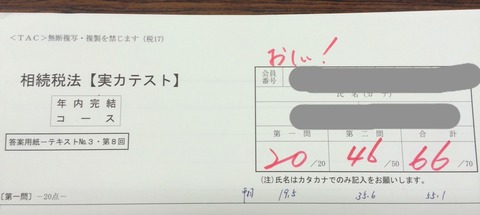 <TAC>無断複写・複製を禁じます（税17）
おしい！
相続税法【実力テスト】
年内完結
コース
答案用紙－テキストNo.3・第8回
会員
番号
第一問 第二問 合計
20/20 46/50 66/70
（注）氏名はカタカナでのみ記入をお願いします。
[第一問]－20点－
平均 19.5 35.6 55.1